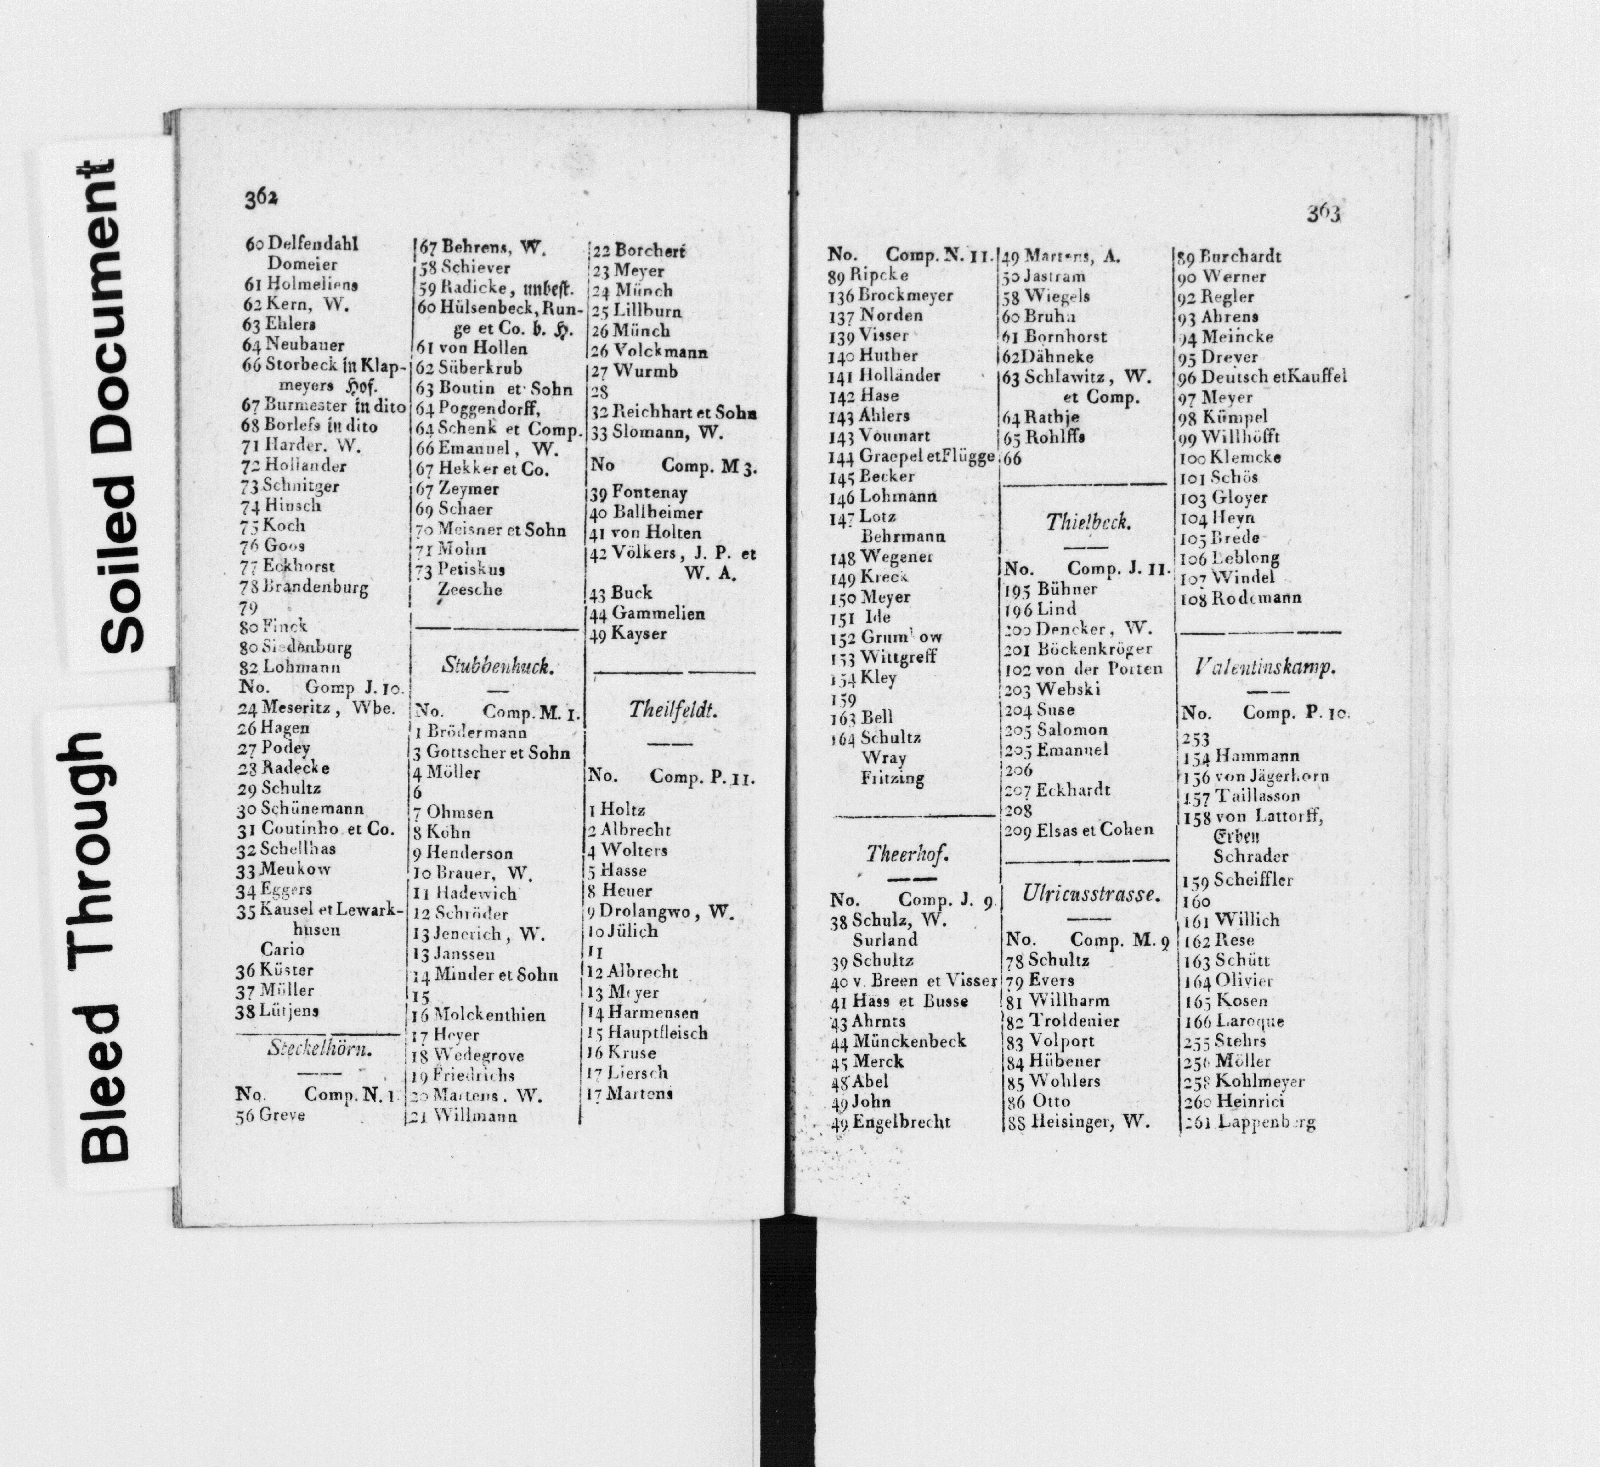 Soiled Document
Bleed Through
362
60 Delfendahl
Domeier
61 Holmeliens
62 Kern, W.
63 Ehlers
64 Neubauer
66 Storbeck in Klap-
meyers Hof.
67 Burmester in dito
68 Borless in dito
71 Harder. W.
72 Hollander
73 Schnitger
74 Hinsch
75 Koch
76 Goos
77 Eckhorst
78 Brandenburg
79
80 Finck
80 Siedenburg
82 Lohmann
No. Gomp J. 10.
24 Meseritz, Wbe.
26 Hagen
27 Podey
28 Radecke
29 Schultz
30 Schünemann
31 Coutinho et Co.
32 Schellhas
33 Meukow
34 Eggers
35 Kausel et Lewark-
husen
Cario
36 Küster
37 Müller
38 Lütjens
Steckelhörn.
No. Comp. N. 1.
56 Greve
67 Behrens, W.
58 Schiever
59 Radicke, unbest.
60 Hülsenbeck, Run-
ge et Co. b. H.
61 von Hollen
62 Süberkrub
63 Boutin et Sohn
64 Poggendorff,
64 Schenk et Comp.
66 Emanuel, W.
67 Hekker et Co.
67 Zeymer
69 Schaer
70 Meisner et Sohn
71 Mohn
73 Petiskus
Zeesche
Stubbenhuck.
No. Comp. M. 1.
1 Brödermann
3 Gottscher et Sohn
4 Möller
6
7 Ohmsen
8 Köhn
9 Henderson
10 Brauer, W.
11 Hadewich
12 Schröder
13 Jenerich, W.
13 Janssen
14 Minder et Sohn
15
16 Molckenthien
17 Heyer
18 Wedegrove
19 Friedrichs
20 Martens. W.
21 Willmann
22 Borchert
23 Meyer
24 Münch
25 Lillburn
26 Münch
26 Volckmann
27 Wurmb
28
32 Reichhart et Sohn
33 Slomann, W.
No Comp. M 3.
39 Fontenay
40 Ballheimer
41 von Holten
42 Völkers, J. P. et
W. A.
43 Buck
44 Gammelien
49 Kayser
Theilfeldt.
No. Comp. P. 11.
1 Holtz
2 Albrecht
4 Wolters
5 Hasse
8 Heuer
9 Drolangwo, W.
10 Jülich
11
12 Albrecht
13 Meyer
14 Harmensen
15 Hauptfleisch
16 Kruse
17 Liersch
17 Martens
363
No. Comp. N. 11.
89 Ripcke
136 Brockmeyer
137 Norden
139 Visser
140 Huther
141 Holländer
142 Hase
143 Ahlers
143 Voumart
144 Graepel et Flügge
145 Becker
146 Lohmann
147 Lotz
Behrmann
148 Wegener
149 Kreck
150 Meyer
151 Ide
152 Grumbow
153 Wittgreff
154 Kley
159
163 Bell
164 Schultz
Wray
Fritzing
Theerhof.
No. Comp. J. 9.
38 Schulz, W.
Surland
39 Schultz
40 v. Breen et Visser
41 Hass et Busse
43 Ahrnts
44 Münckenbeck
45 Merck
48 Abel
49 John
49 Engelbrecht
49 Martens, A.
50 Jastram
58 Wiegels
60 Bruhn
61 Bornhorst
62 Dähneke
63 Schlawitz, W.
et Comp.
64 Rathje
65 Rohlffs
66
Thielbeck.
No. Comp. J. 11.
195 Bühner
196 Lind
200 Dencker, W.
201 Böckenkröger
102 von der Porten
203 Webski
204 Suse
205 Salomon
205 Emanuel
206
207 Eckhardt
208
209 Elsas et Cohen
Ulricusstrasse.
No. Comp. M. 9
78 Schultz
79 Evers
81 Willharm
82 Troldenier
83 Volport
84 Hübener
85 Wohlers
86 Otto
88 Heisinger, W.
89 Burchardt
90 Werner
92 Regler
93 Ahrens
94 Meincke
95 Dreyer
96 Deutsch et Kauffel
97 Meyer
98 Kümpel
99 Willhöfft
100 Klemcke
101 Schös
103 Gloyer
104 Heyn
105 Brede
106 Leblong
107 Windel
108 Rodemann
Valentinskamp.
No. Comp. P. 10.
253
154 Hammann
156 von Jägerhorn
157 Taillasson
158 von Lattorff,
Erben
Schrader
159 Scheiffler
160
161 Willich
162 Rese
163 Schütt
164 Olivier
165 Kosen
166 Laroque
255 Stehrs
256 Möller
258 Kohlmeyer
260 Heinrici
261 Lappenberg